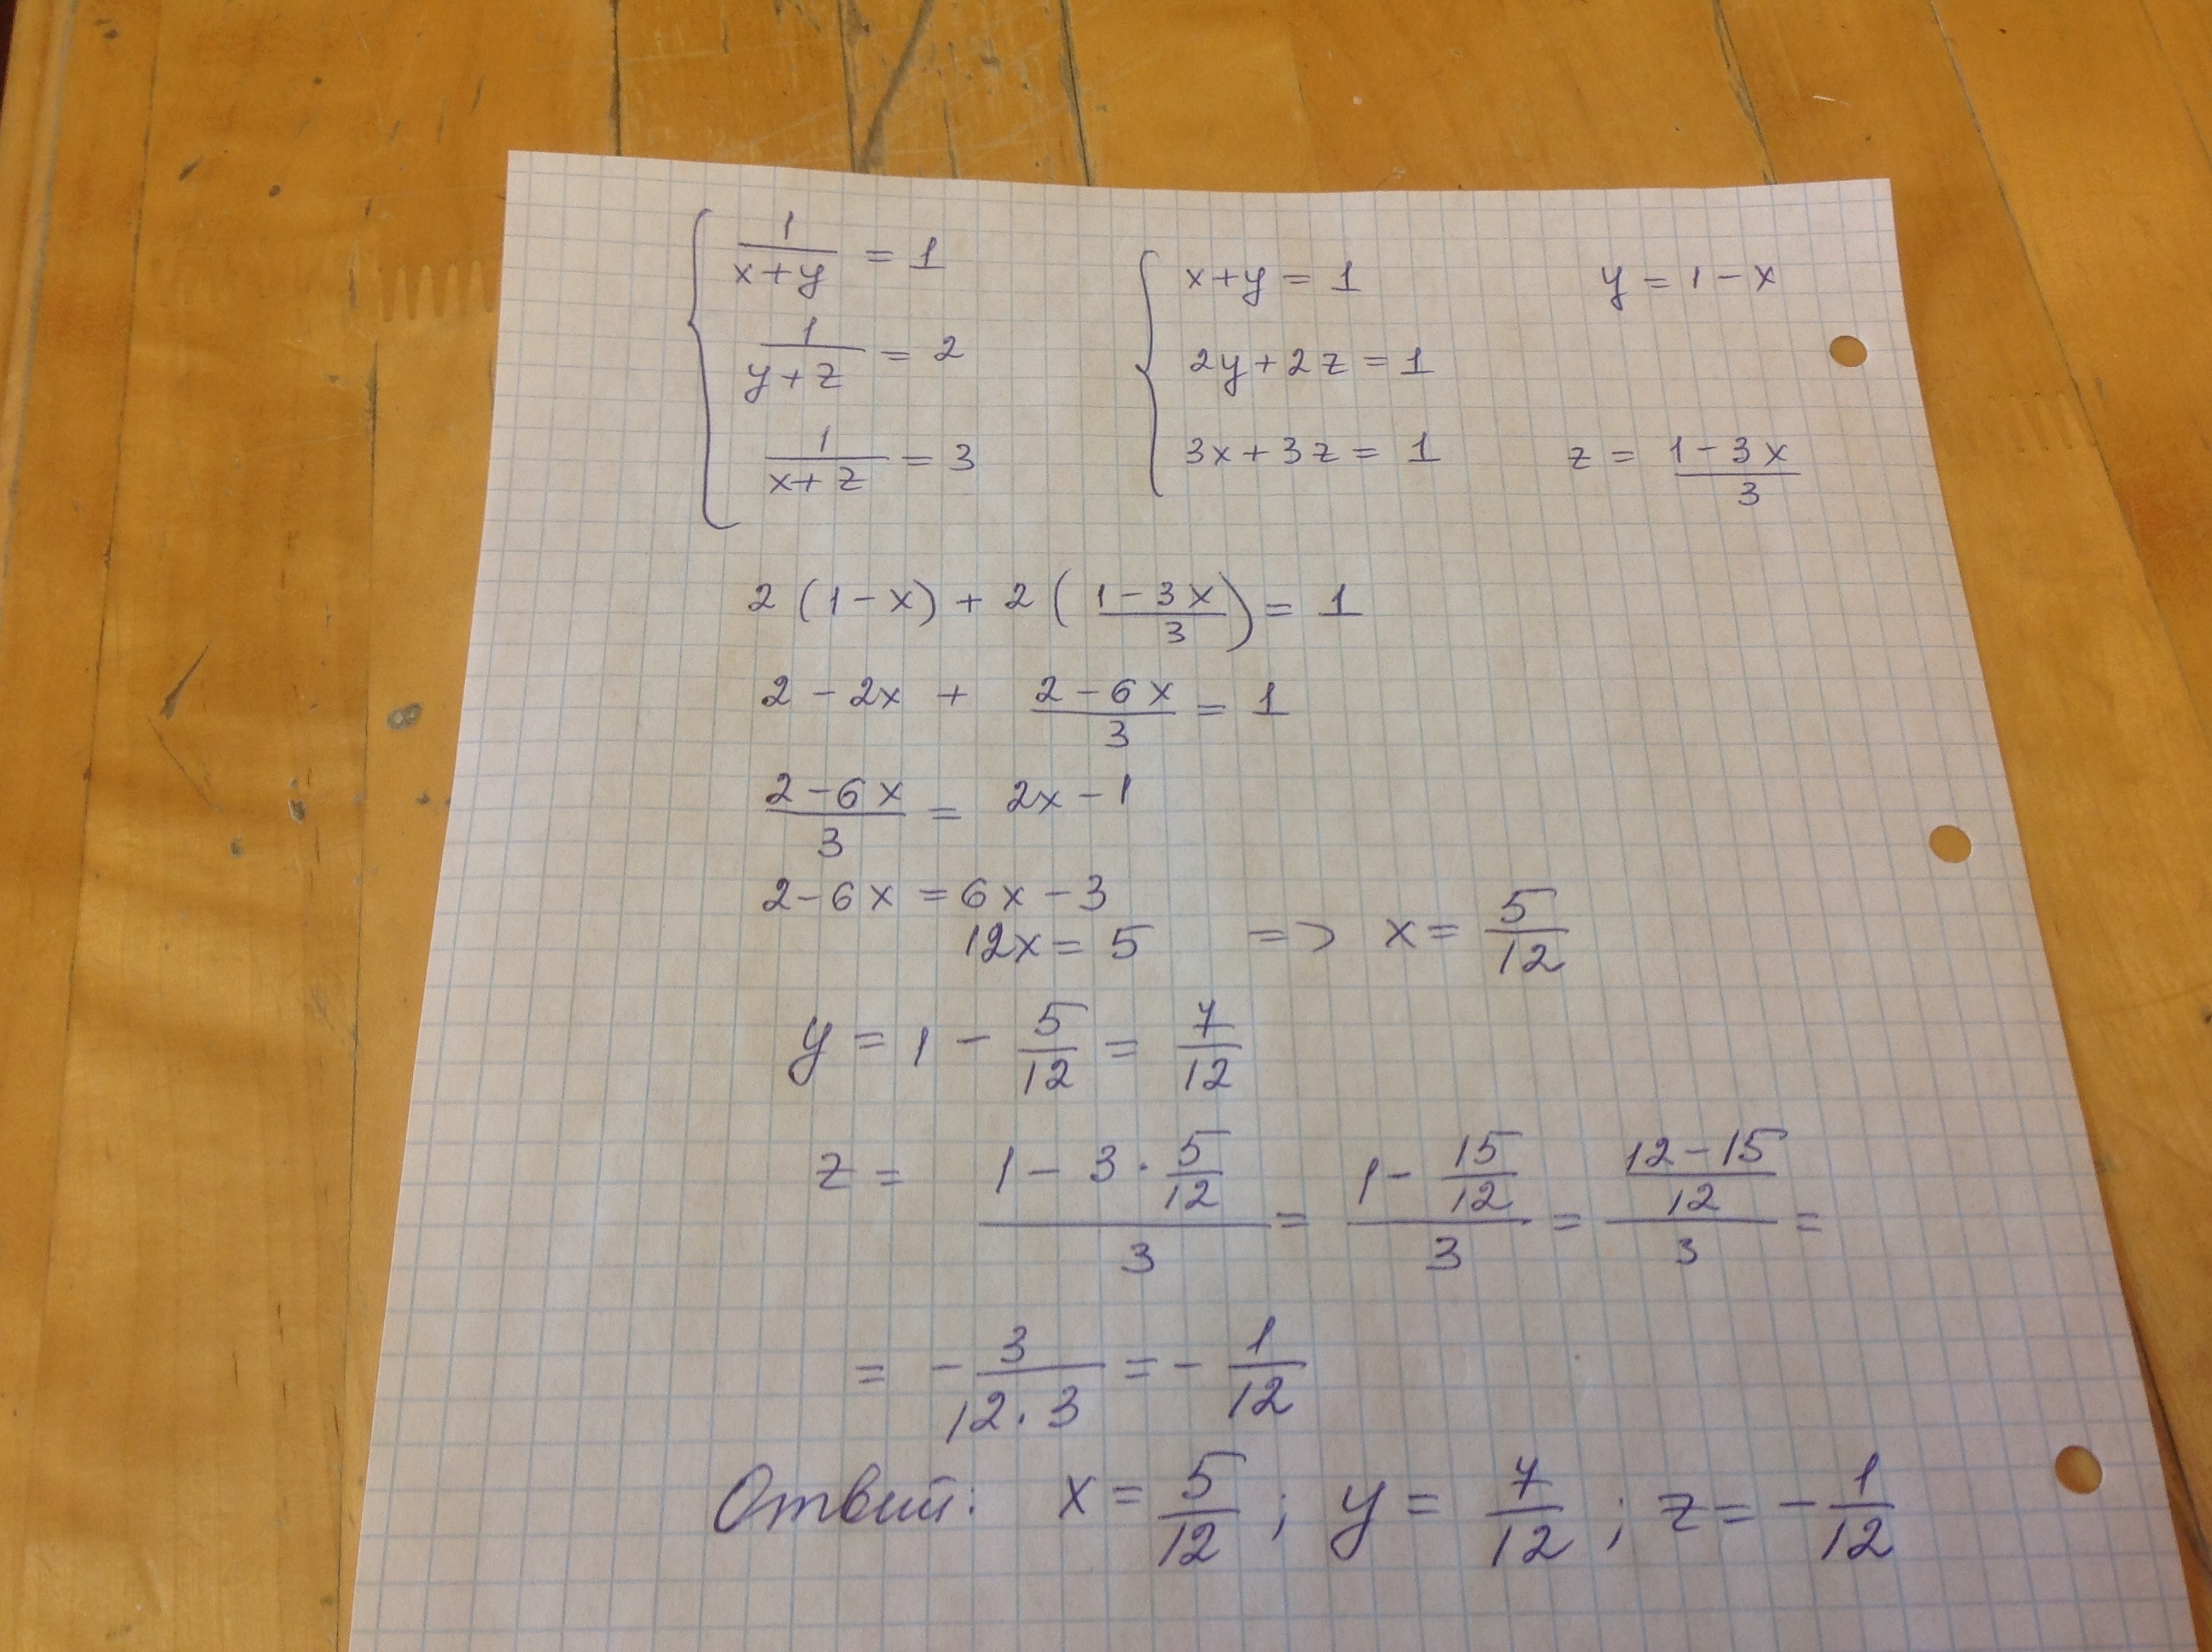 1/(x+y) = 1    x+y = 1    y = 1 - x
1/(y+z) = 2    2y+2z = 1
1/(x+z) = 3    3x+3z = 1    z = (1-3x)/3
2(1-x) + 2((1-3x)/3) = 1
2 - 2x + (2-6x)/3 = 1
(2-6x)/3 = 2x - 1
2-6x = 6x-3
12x = 5 => x = 5/12
y = 1 - 5/12 = 7/12
z = (1 - 3·5/12)/3 = (1 - 15/12)/3 = ((12-15)/12)/3 =
= - 3/(12·3) = - 1/12
Ответ: x = 5/12 ; y = 7/12 ; z = - 1/12